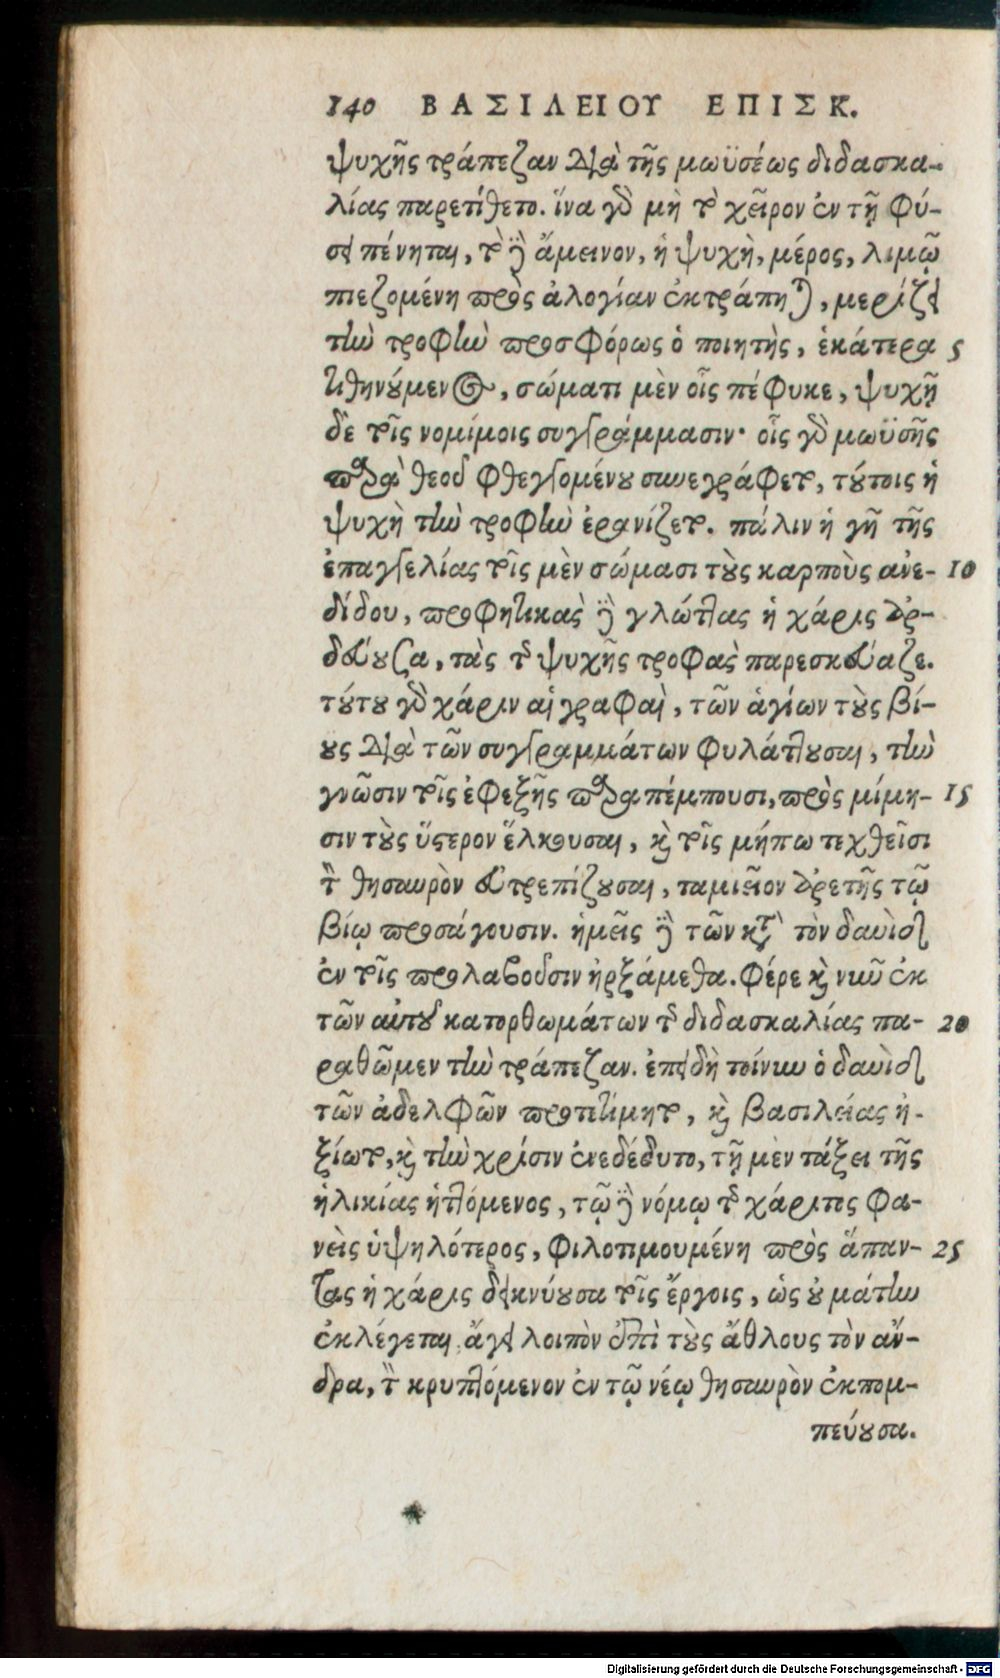 140 ΒΑΣΙΛΕΙΟΥ ΕΠΙΣΚ.
ψυχῆς τράπεζαν διὰ τῆς μωϋσέως διδασκα-
λίας παρετίθετο. ἵνα γὰρ μὴ τὸ χεῖρον ἐν τῇ φύ-
σει πένηται, τὸ δὲ ἄμεινον, ἡ ψυχὴ, μέρος, λιμῷ
πιεζομένη πρὸς ἀλογίαν ἐκτράπηται, μερίζει
τὴν τροφὴν προσφόρως ὁ ποιητὴς, ἑκάτερα 5
τιθηνούμενος, σώματι μὲν οἷς πέφυκε, ψυχῇ
δὲ τοῖς νομίμοις συγγράμμασιν· οἷς γὰρ μωϋσῆς
παρὰ θεοῦ φθεγγομένου συνεγράφετο, τούτοις ἡ
ψυχὴ τὴν τροφὴν ἐρανίζετο. πάλιν ἡ γῆ τῆς
ἐπαγγελίας τοῖς μὲν σώμασι τοὺς καρποὺς ἀνε- 10
δίδου, προφητικὰς δὲ γλώττας ἡ χάρις ἀρ-
δεύουσα, τὰς τῆς ψυχῆς τροφὰς παρεσκεύαζε.
τούτου γὰρ χάριν αἱ γραφαὶ, τῶν ἁγίων τοὺς βί-
ους διὰ τῶν συγγραμμάτων φυλάττουσαι, τὴν
γνῶσιν τοῖς ἐφεξῆς παραπέμπουσι, πρὸς μίμη- 15
σιν τοὺς ὕστερον ἕλκουσαι, καὶ τοῖς μήπω τεχθεῖσι
τὸν θησαυρὸν εὐτρεπίζουσαι, ταμιεῖον ἀρετῆς τῷ
βίῳ προσάγουσιν. ἡμεῖς δὲ τῶν κατὰ τὸν δαυὶδ
ἐν τοῖς προλαβοῦσιν ἠρξάμεθα. Φέρε καὶ νῦν ἐκ
τῶν αὐτοῦ κατορθωμάτων τῆς διδασκαλίας πα- 20
ραθῶμεν τὴν τράπεζαν. ἐπειδὴ τοίνυν ὁ δαυὶδ
τῶν ἀδελφῶν προτετίμητο, καὶ βασιλείας ἠ-
ξίωτο, καὶ τὴν χρίσιν ἐνεδέδυτο, τῇ μὲν τάξει τῆς
ἡλικίας ἡττόμενος, τῷ δὲ νόμῳ τῆς χάριτος φα-
νεὶς ὑψηλότερος, φιλοτιμουμένη πρὸς ἅπαν- 25
τας ἡ χάρις δεικνύουσα τοῖς ἔργοις, ὡς οὐ μάτην
ἐκλέγεται, ἄγει λοιπὸν ἐπὶ τοὺς ἄθλους τὸν ἄν-
δρα, τὸν κρυπτόμενον ἐν τῷ νέῳ θησαυρὸν ἐκπομ-
πεύουσα.
Digitalisierung gefördert durch die Deutsche Forschungsgemeinschaft - DFG